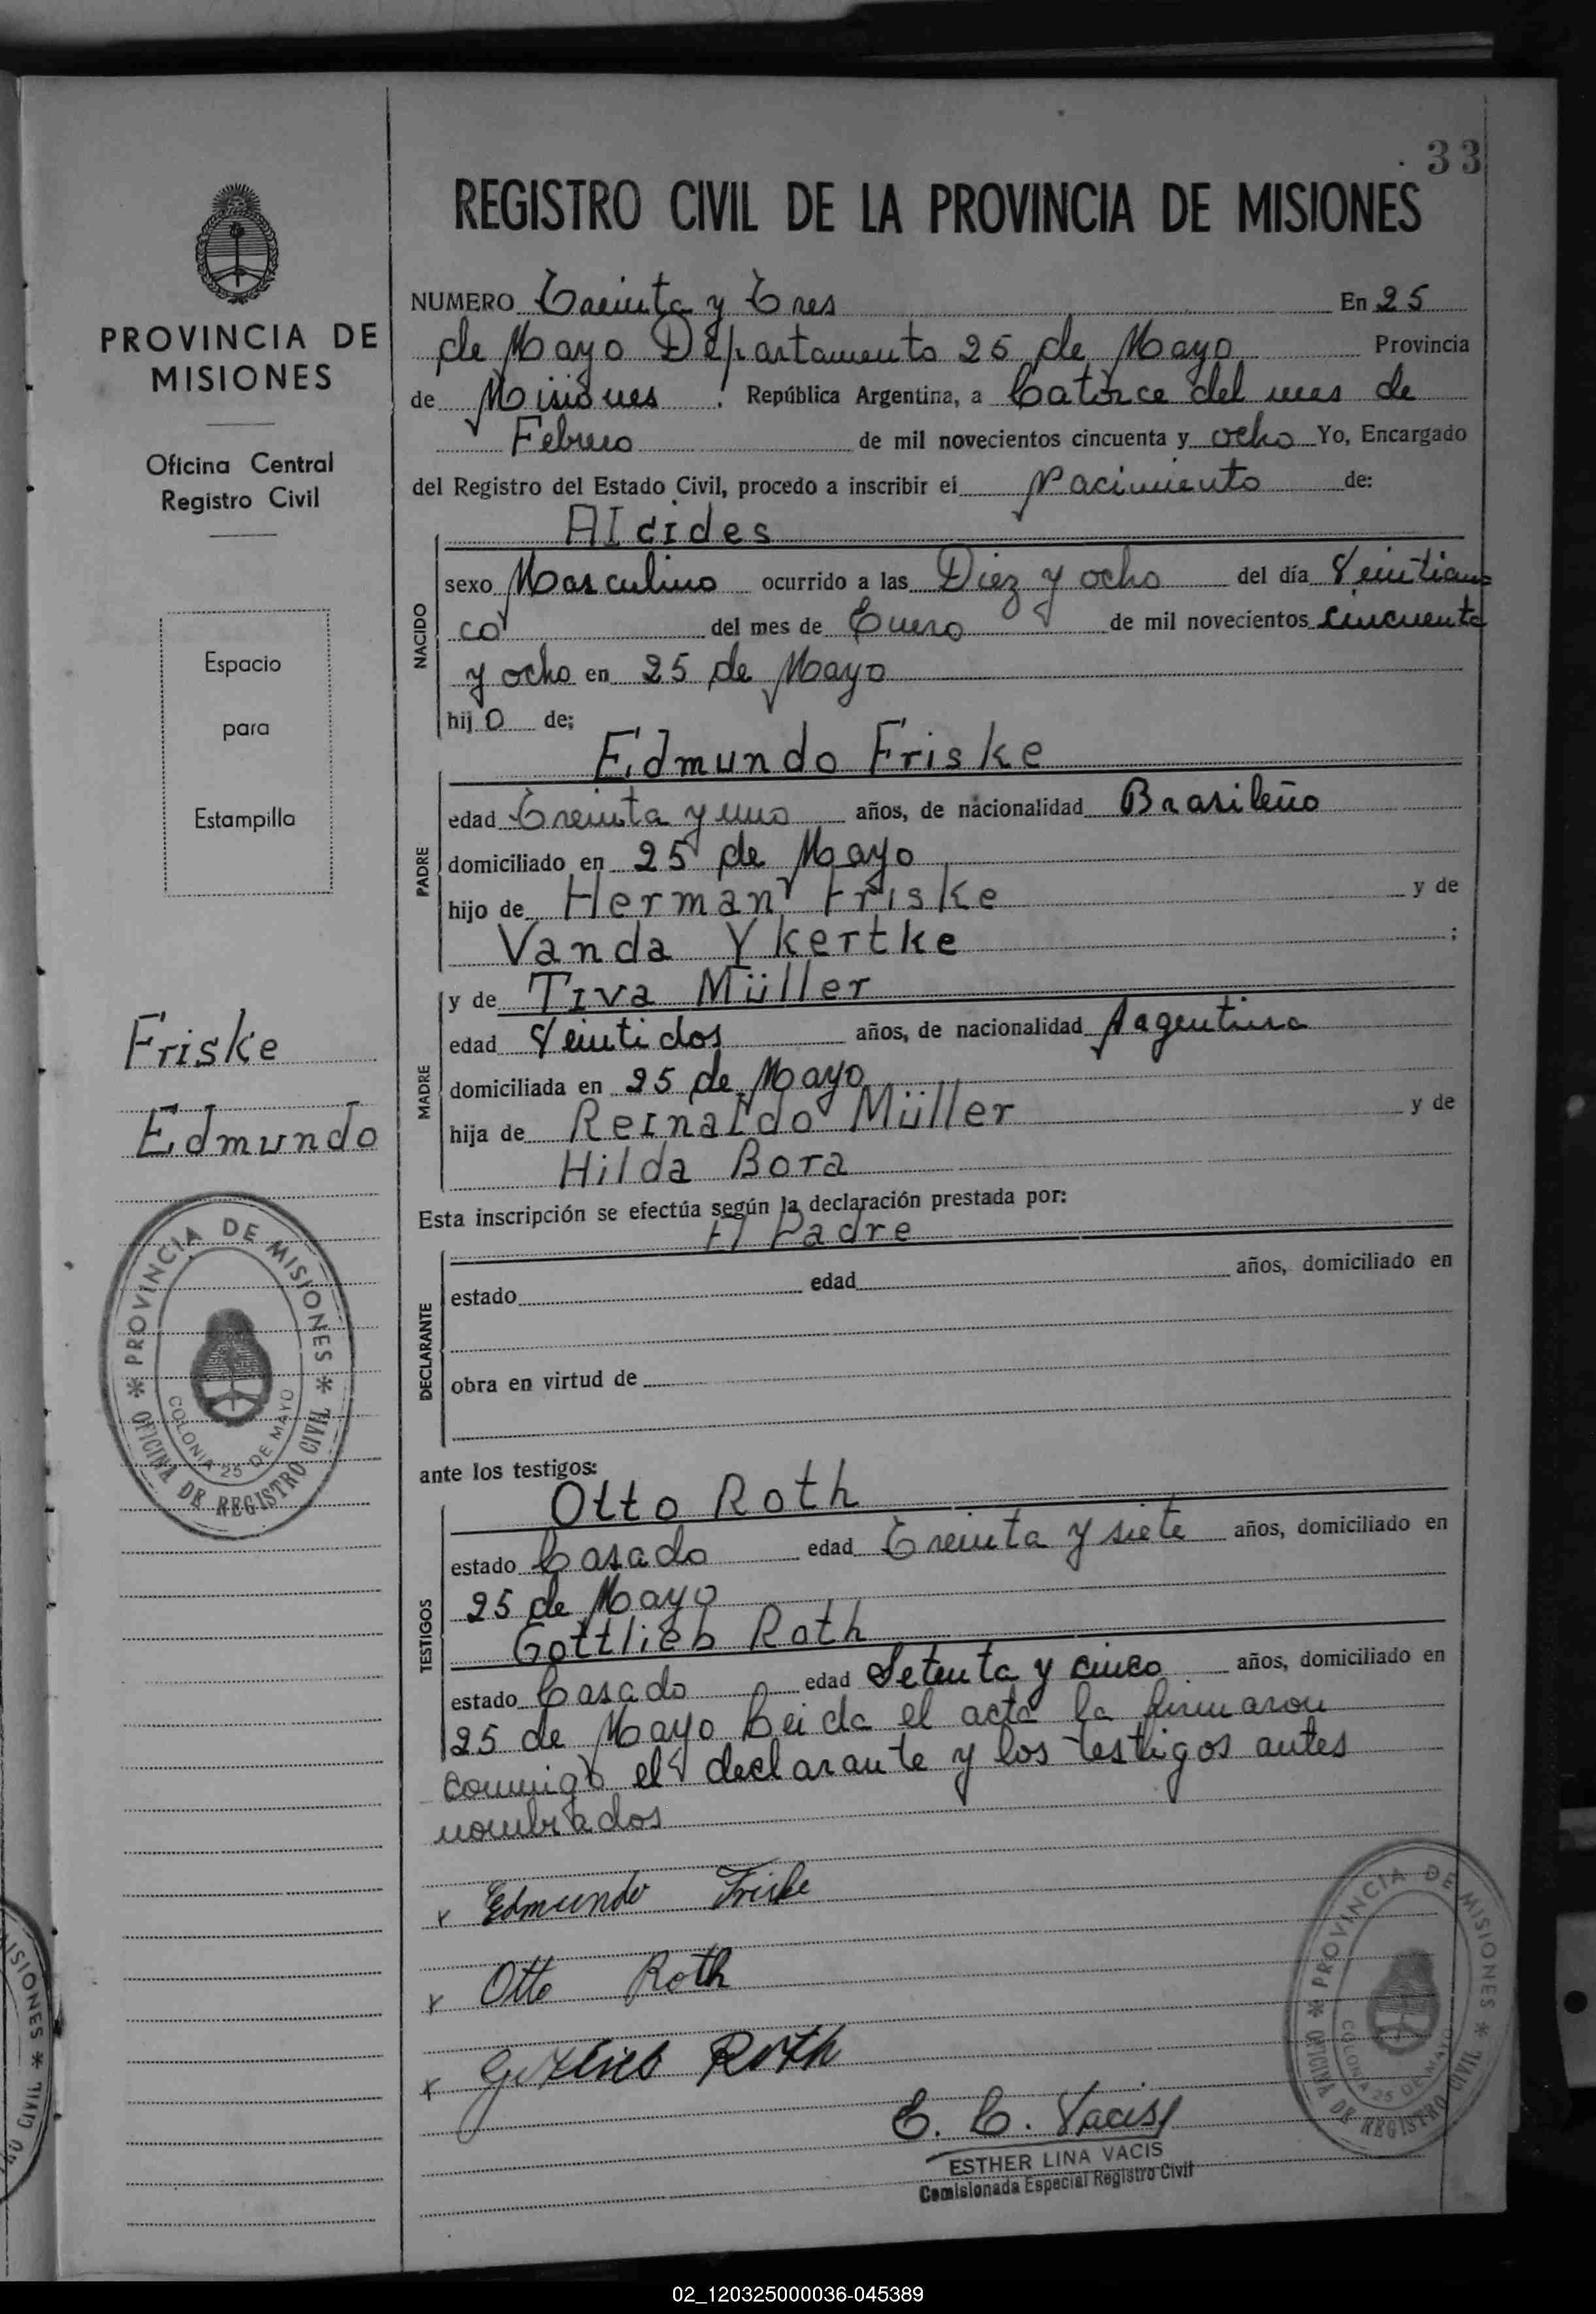 33
REGISTRO CIVIL DE LA PROVINCIA DE MISIONES
PROVINCIA DE
MISIONES
Oficina Central
Registro Civil
Espacio
para
Estampilla
Friske
Edmundo
PROVINCIA DE MISIONES
COLONIA 25 DE MAYO
OFICINA DE REGISTRO CIVIL
NUMERO Treinta y Tres En 25
de Mayo Departamento 25 de Mayo Provincia
de Misiones, República Argentina, a Catorce del mes de
Febrero de mil novecientos cincuenta y ocho Yo, Encargado
del Registro del Estado Civil, procedo a inscribir el Nacimiento de:
Alcides
NACIDO
sexo Masculino ocurrido a las Diez y ocho del día Veinticin
co del mes de Enero de mil novecientos cincuenta
y ocho en 25 de Mayo
hijo de:
Edmundo Friske
PADRE
edad Treinta y uno años, de nacionalidad Brasileño
domiciliado en 25 de Mayo
hijo de Herman Friske y de
Vanda Ykertke ;
MADRE
y de Tiva Müller
edad Veintidos años, de nacionalidad Argentina
domiciliada en 25 de Mayo
hija de Reinaldo Müller y de
Hilda Bora
Esta inscripción se efectúa según la declaración prestada por:
El Padre
DECLARANTE
estado edad años, domiciliado en
obra en virtud de
ante los testigos:
Otto Roth
TESTIGOS
estado Casado edad Treinta y siete años, domiciliado en
25 de Mayo
Gottlieb Roth
estado Casado edad Setenta y cinco años, domiciliado en
25 de Mayo Leida el acta la firmaron
conmigo el declarante y los testigos antes
nombrados
x Edmundo Friske
x Otto Roth
x Gottlieb Roth
E. L. Vacis
ESTHER LINA VACIS
Comisionada Especial Registro Civil
PROVINCIA DE MISIONES
COLONIA 25 DE MAYO
OFICINA DE REGISTRO CIVIL
ISIONES
CIVIL
02_120325000036-045389